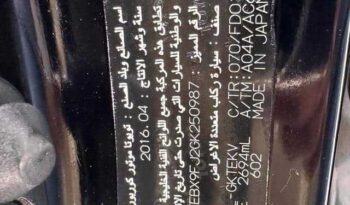 اسم الصانع وبلد الصنع : تويوتا موتور
سنة وشهر الانتاج : 2016.04
تطابق هذه المركبة جميع اللوائح الفنية الخليجية
والوطنية للسيارات التي صدرت حتى تاريخ
الرقم المميز : EBX9FJ2GK250987
صنف : سيارة ركاب متعددة الاغراض
GKTEKV
2694mL
602
C/TR: 070/FD0
A/TM: A04A/
MADE IN JAPAN